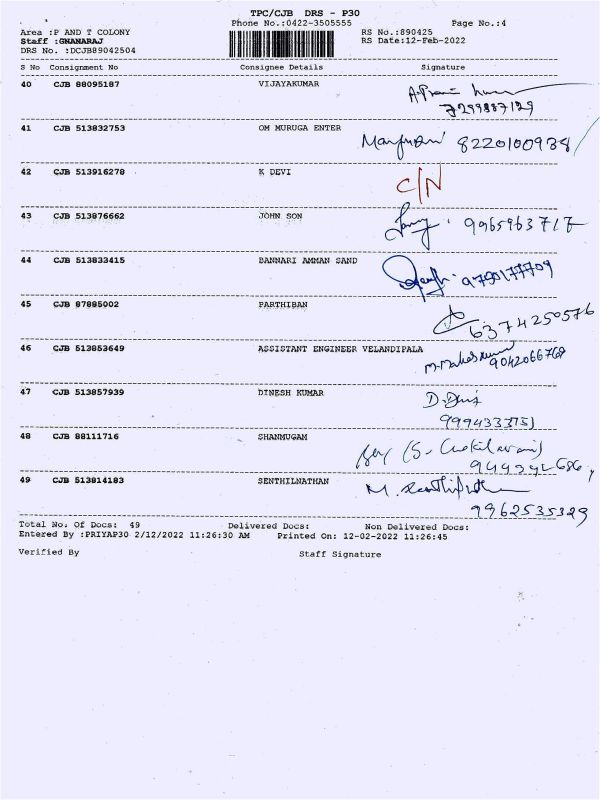 TPC/CJB DRS - P30
Phone No.:0422-3505555 Page No.:4
Area :P AND T COLONY RS No.:890425
Staff :GNANARAJ RS Date:12-Feb-2022
DRS No. :DCJB89042504
S No Consignment No Consignee Details Signature
40 CJB 88095187 VIJAYAKUMAR
7299887129
41 CJB 513832753 OM MURUGA ENTER
8220100938
42 CJB 513916278 K DEVI C/N
43 CJB 513876662 JOHN SON
9965963717
44 CJB 513833415 BANNARI AMMAN SAND
9790177709
45 CJB 87885002 PARTHIBAN
6374250576
46 CJB 513853649 ASSISTANT ENGINEER VELANDIPALA
9042066768
47 CJB 513857939 DINESH KUMAR
48 CJB 88111716 SHANMUGAM
49 CJB 513814183 SENTHILNATHAN
9962535329
Total No. Of Docs: 49 Delivered Docs: Non Delivered Docs:
Entered By :PRIYAP30 2/12/2022 11:26:30 AM Printed On: 12-02-2022 11:26:45
Verified By Staff Signature